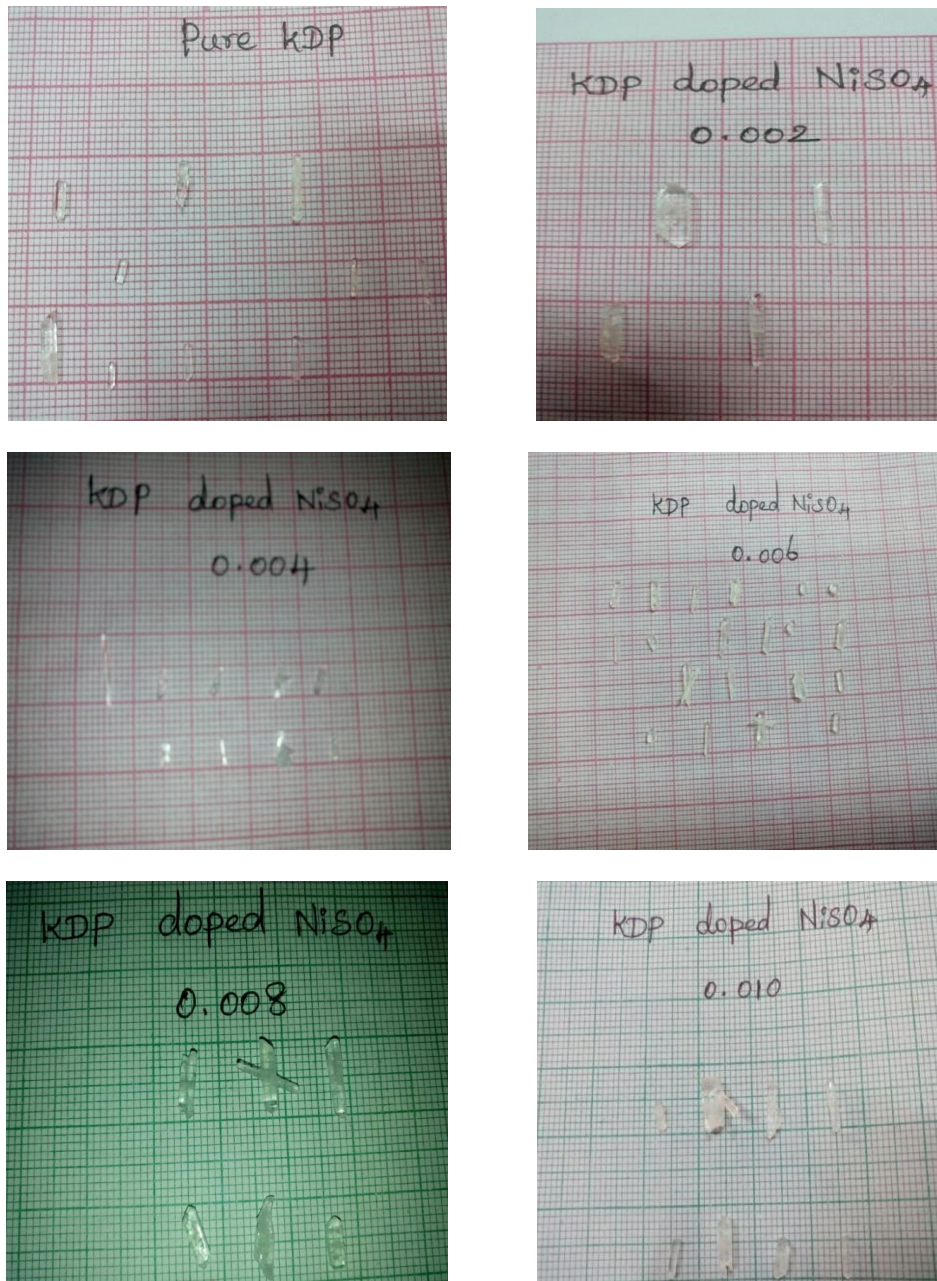 Pure KDP
KDP doped NiSO4
0.002
KDP doped NiSO4
0.004
KDP doped NiSO4
0.006
KDP doped NiSO4
0.008
KDP doped NiSO4
0.010